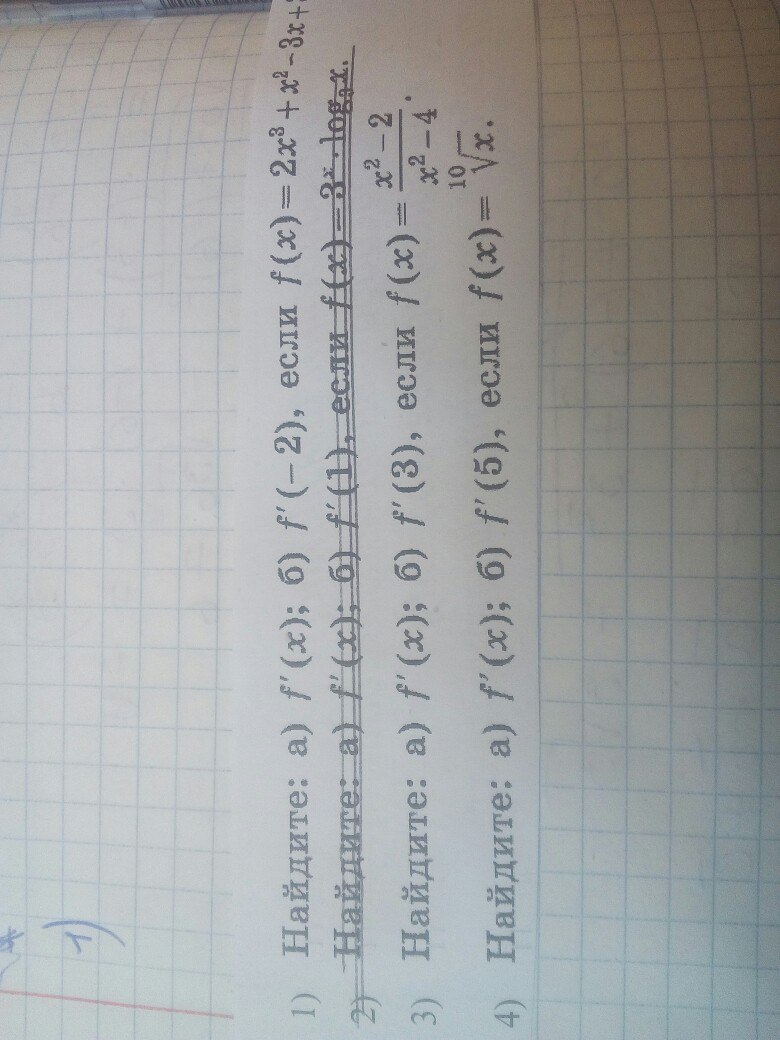 1)
1) Найдите: а) f'(x); б) f'(−2), если f(x)=2x³+x²−3x+
2) Найдите: а) f'(x); б) f'(1), если f(x)=3ˣ·log₃x.
3) Найдите: а) f'(x); б) f'(3), если f(x)=(x²−2)/(x²−4).
4) Найдите: а) f'(x); б) f'(5), если f(x)=¹⁰√x.